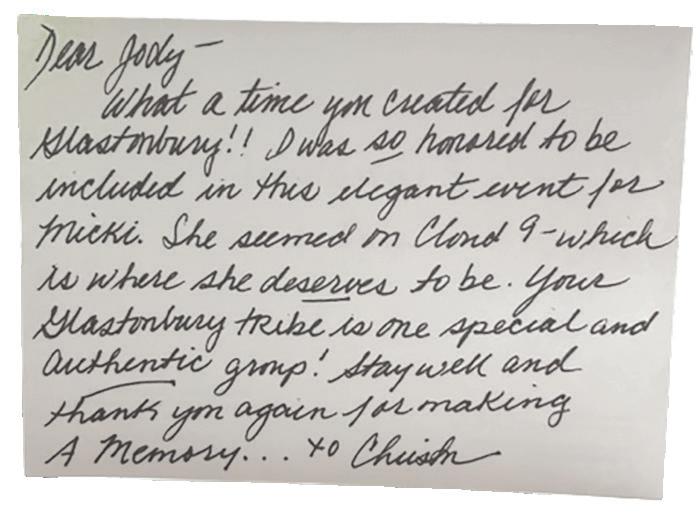 Dear Jody —
What a time you created for
Glastonbury!! I was so honored to be
included in this elegant event for
Micki. She seemed on Cloud 9 - which
is where she deserves to be. Your
Glastonbury tribe is one special and
authentic group! Stay well and
thank you again for making
A Memory... xo